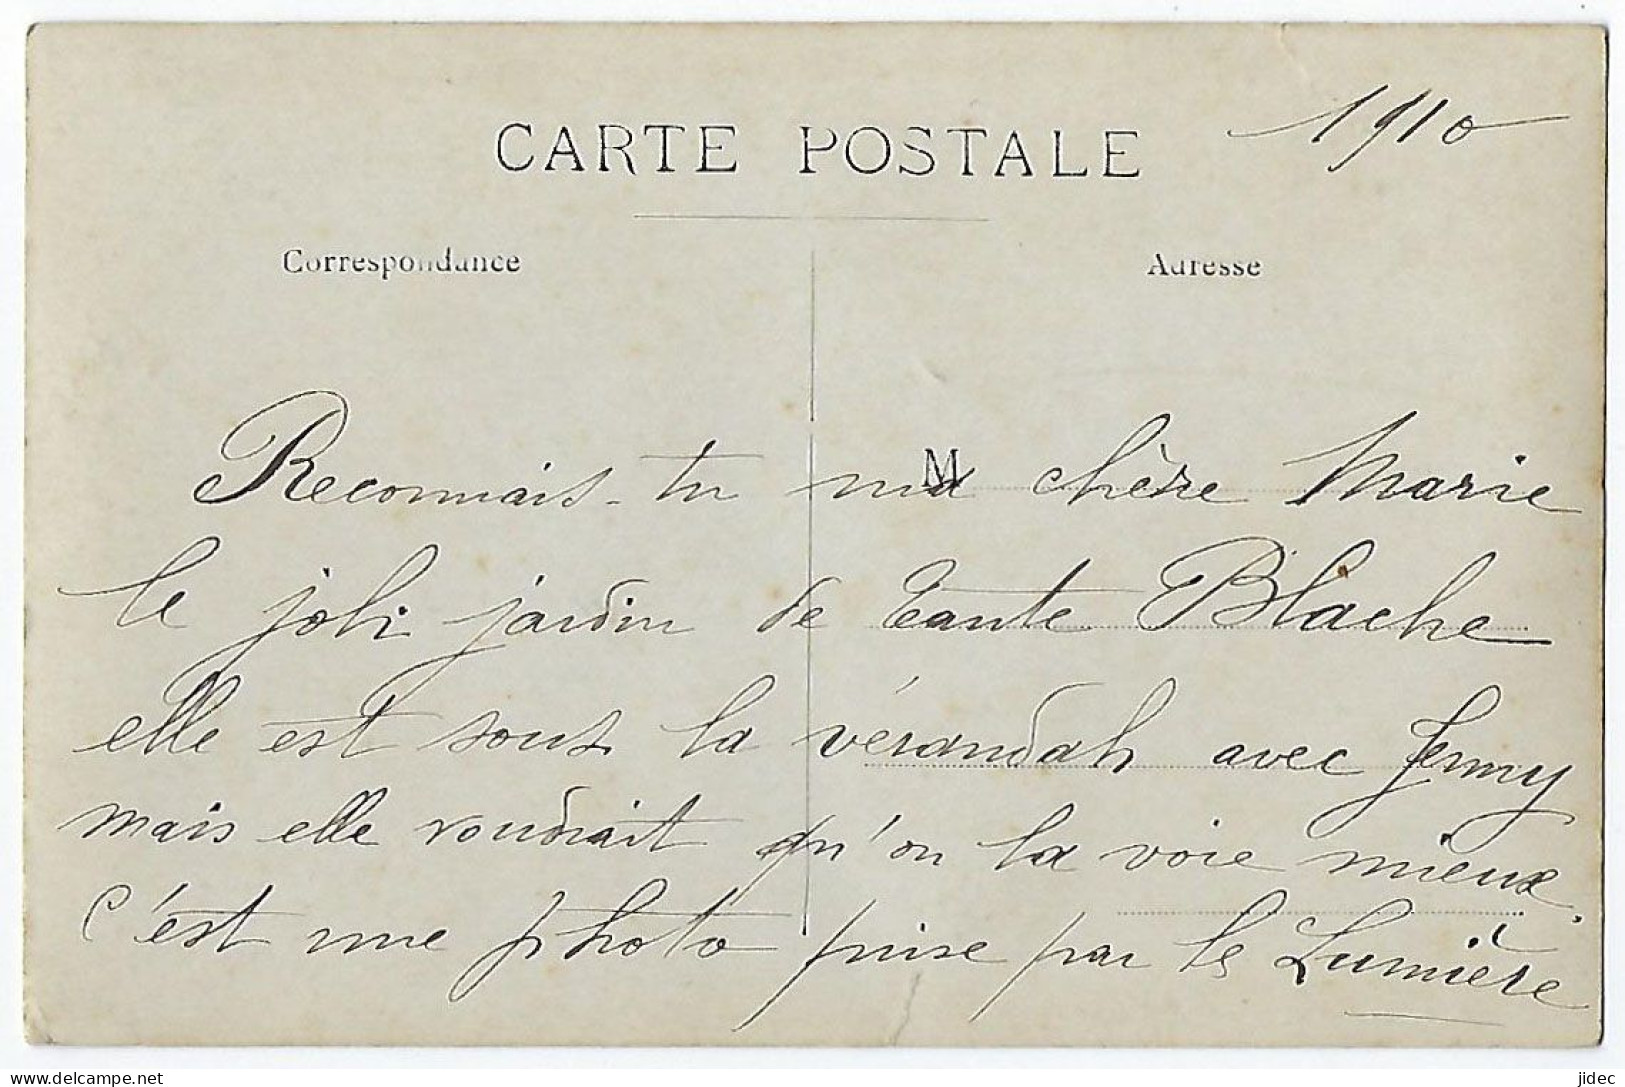 1910
CARTE POSTALE
Correspondance
Adresse
M
Reconnais-tu ma chère Marie
le joli jardin de Tante Blache
elle est sous la vérandah avec Jenny
mais elle voudrait qu'on la voie mieux.
C'est une photo prise par les Lumière
www.delcampe.net
jidec